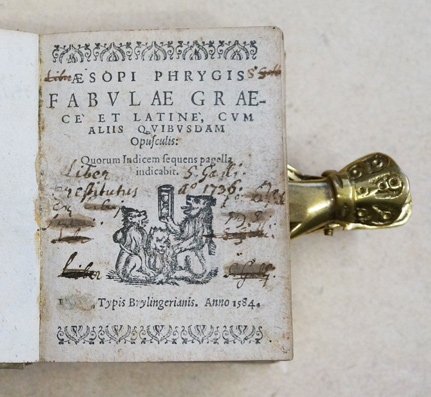 ÆSOPI PHRYGIS
FABVLAE GRAE-
CE ET LATINE, CVM
ALIIS QVIBVSDAM
Opuſculis:
Quorum Indicem ſequens pagella
indicabit.
Liber S. Gall:
reſtitutus aº 1736.
Liber
Typis Brylingerianis. Anno 1584.